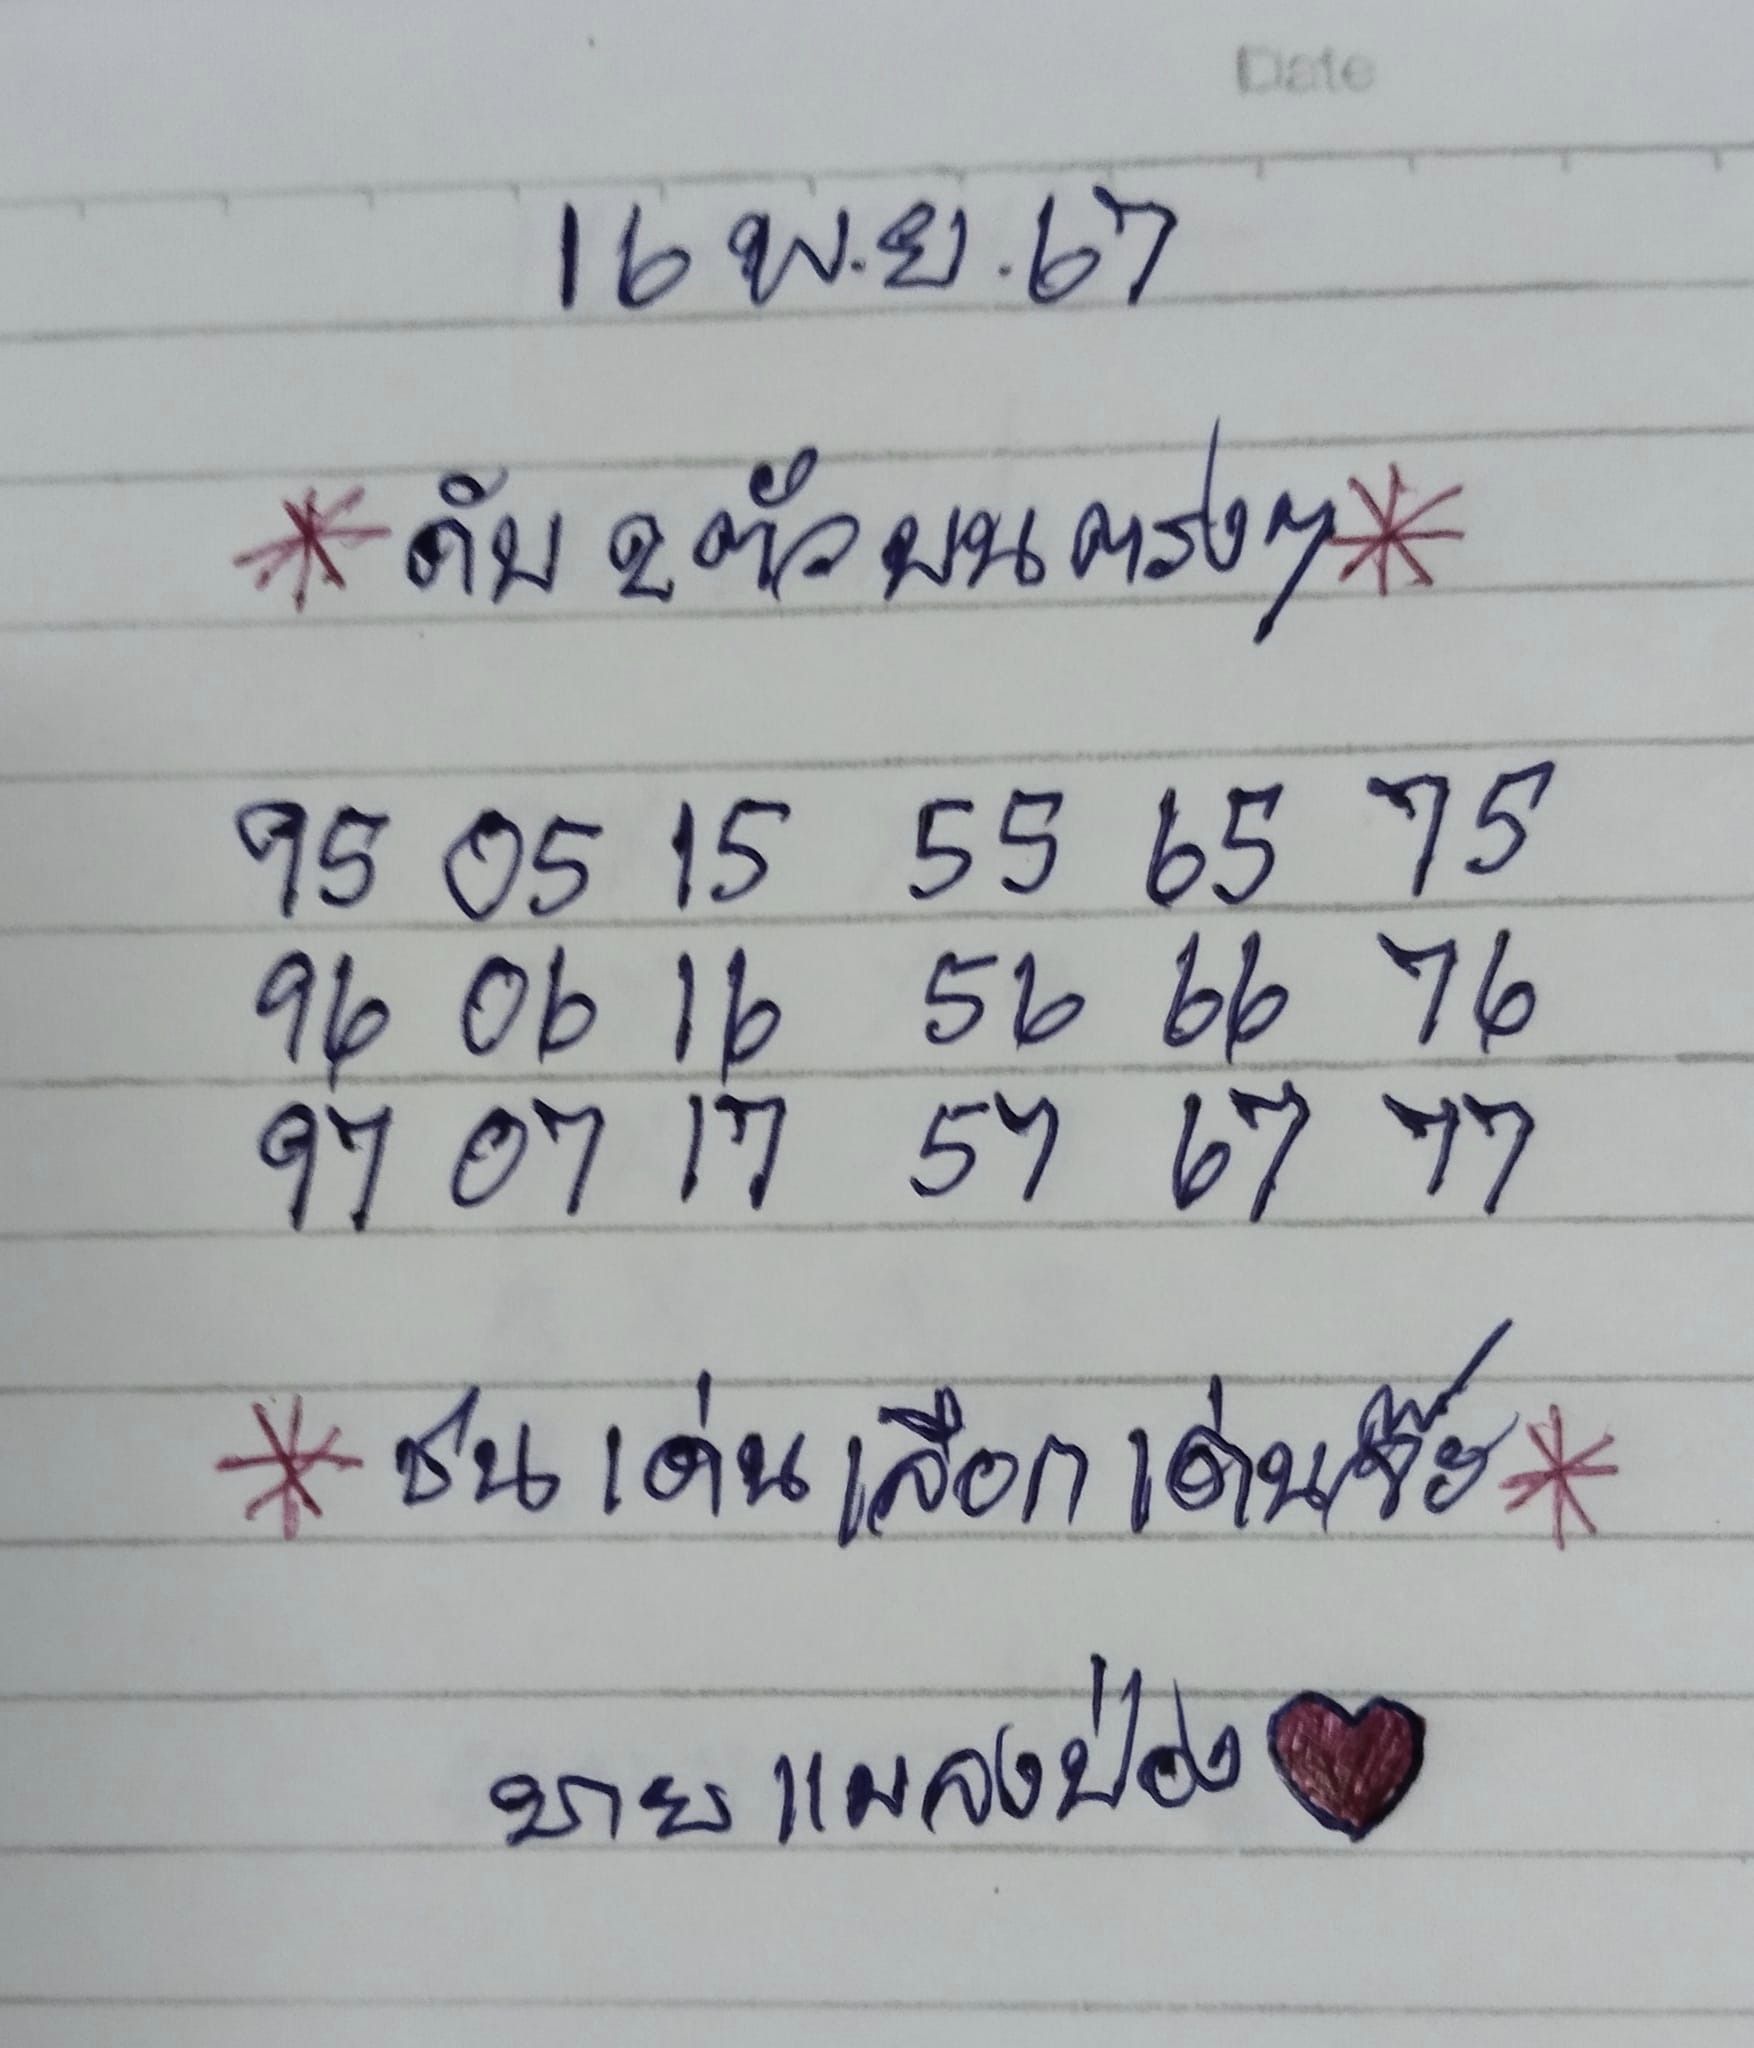 Date
16 พ.ย.67
ดับ 2 ตัวบนตรงๆ
95 05 15 55 65 75
96 06 16 56 66 76
97 07 17 57 67 77
ชนเด่นเลือกเด่นจ๊ะ
นายแมลงป่อง